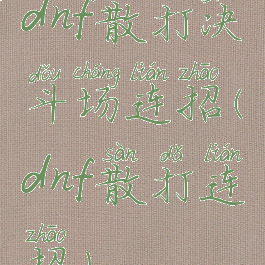 dnf散打决
dǒu cháng lián zhāo
斗场连招(
sàn dǎ lián
dnf散打连
zhāo
招)